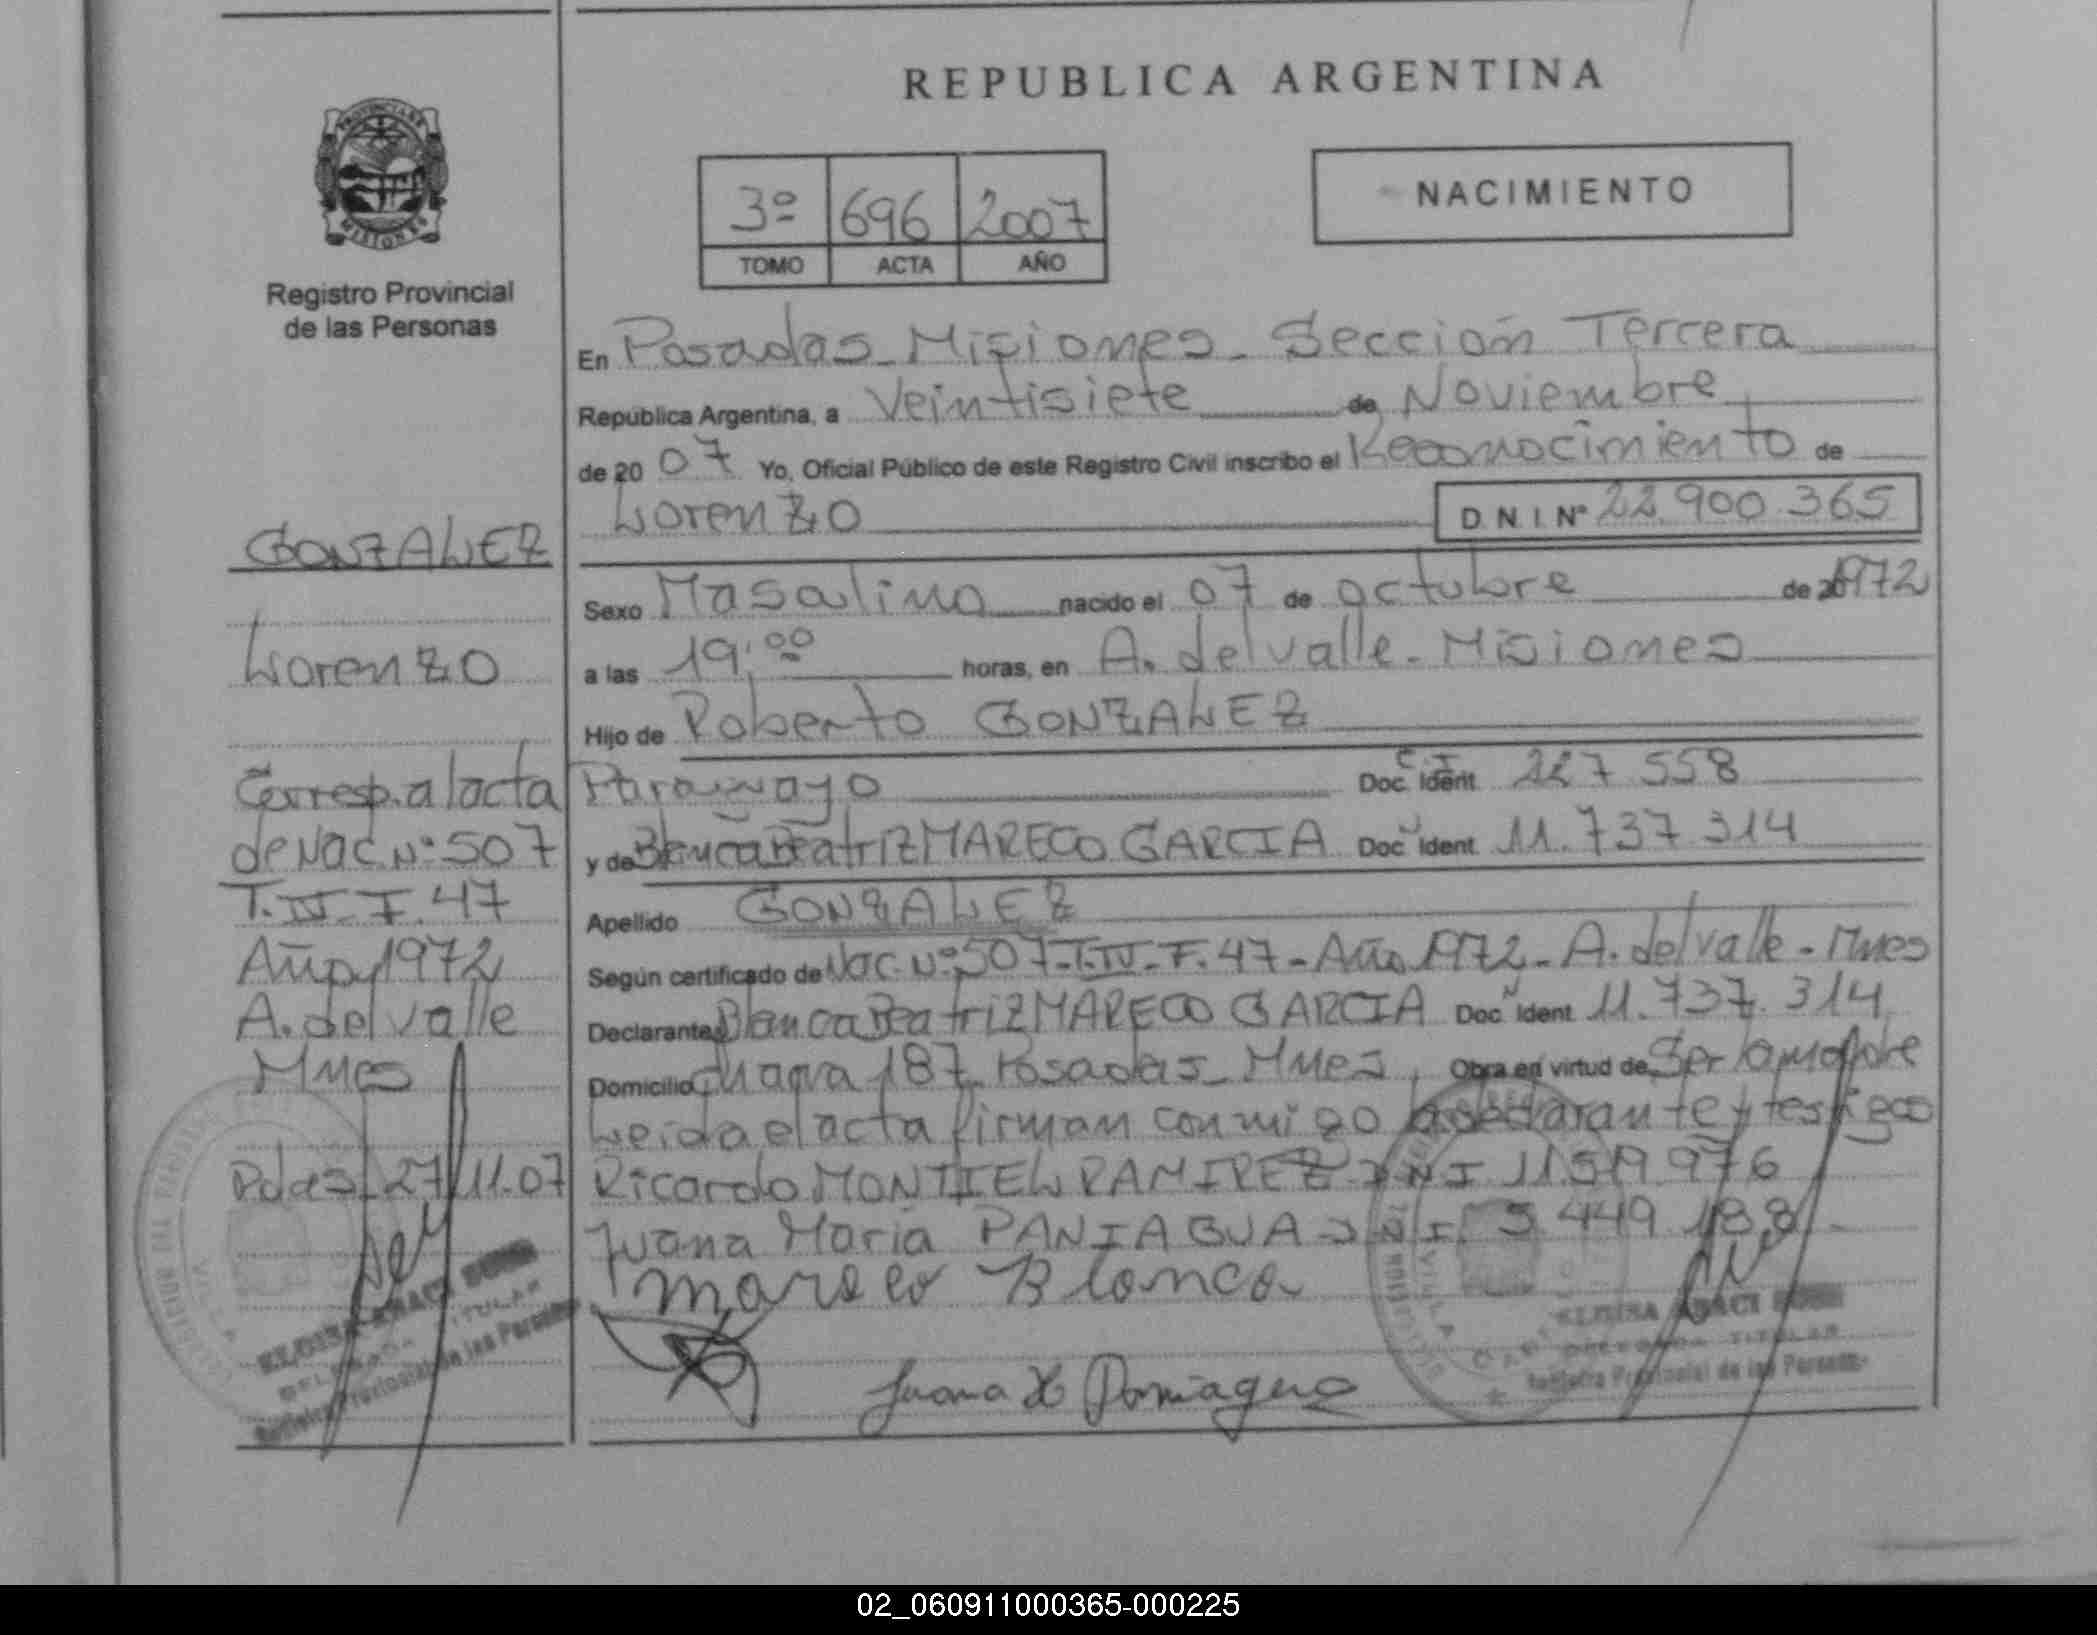 REPUBLICA ARGENTINA
NACIMIENTO
3º 696 2007
TOMO ACTA AÑO
PROVINCIA DE
MISIONES
Registro Provincial
de las Personas
En Posadas - Misiones - Sección Tercera
Republica Argentina, a Veintisiete de Noviembre
de 20 07 Yo, Oficial Público de este Registro Civil inscribo el Reconocimiento de
Lorenzo D N I Nº 22.900.365
Sexo Masculino nacido el 07 de octubre de 1972
a las 19:00 horas, en A. del valle - Misiones
Hijo de Roberto GONZALEZ
Paraguayo Doc. Ident. C I 227 558
y de Blanca Beatriz MARECO GARCIA Doc. Ident. 11.737 314
Apellido GONZALEZ
Según certificado de Nac. Nº 507-T.IV-F.47-Año 1972-A. del valle - Mnes
Declarante Blanca Beatriz MARECO GARCIA Doc. Ident. 11.737.314
Domicilio 187 Posadas - Mnes, Obra en virtud de Ser la madre
Leida el acta firman conmigo la declarante y testigos
Ricardo MONTIEL RAMIREZ DNI 11.519.976
Juana Maria PANIAGUA DNI 5 449 188
Mareco Blanca
Juana M Paniagua
GONZALEZ
Lorenzo
Corresp. al acta
de Nac Nº 507
T. IV - F. 47
Año 1972
A. del valle
Mnes
Pdas 27/11.07
TITULAR
Registro Provincial de las Personas
TITULAR
Registro Provincial de las Personas
02_060911000365-000225